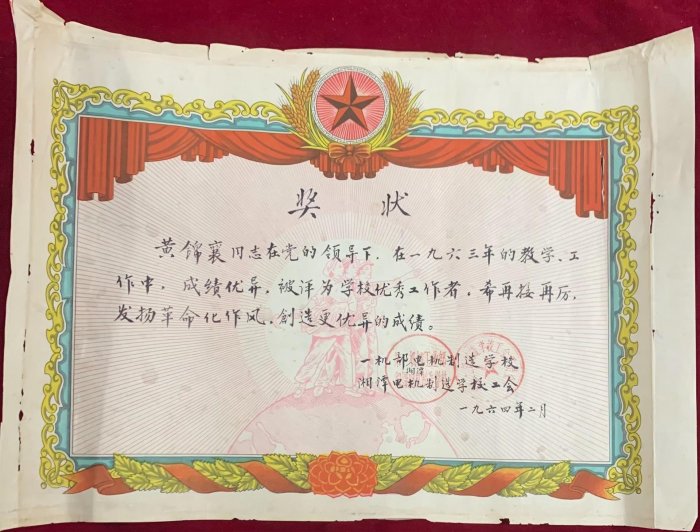 奖 状
黄锦襄同志在党的领导下，在一九六三年的教学、工
作中，成绩优异，被评为学校优秀工作者，希再接再厉，
发扬革命化作风，創造更优异的成绩。
一机部电机制造学校
湘潭
湘潭电机制造学校工会
一九六四年二月